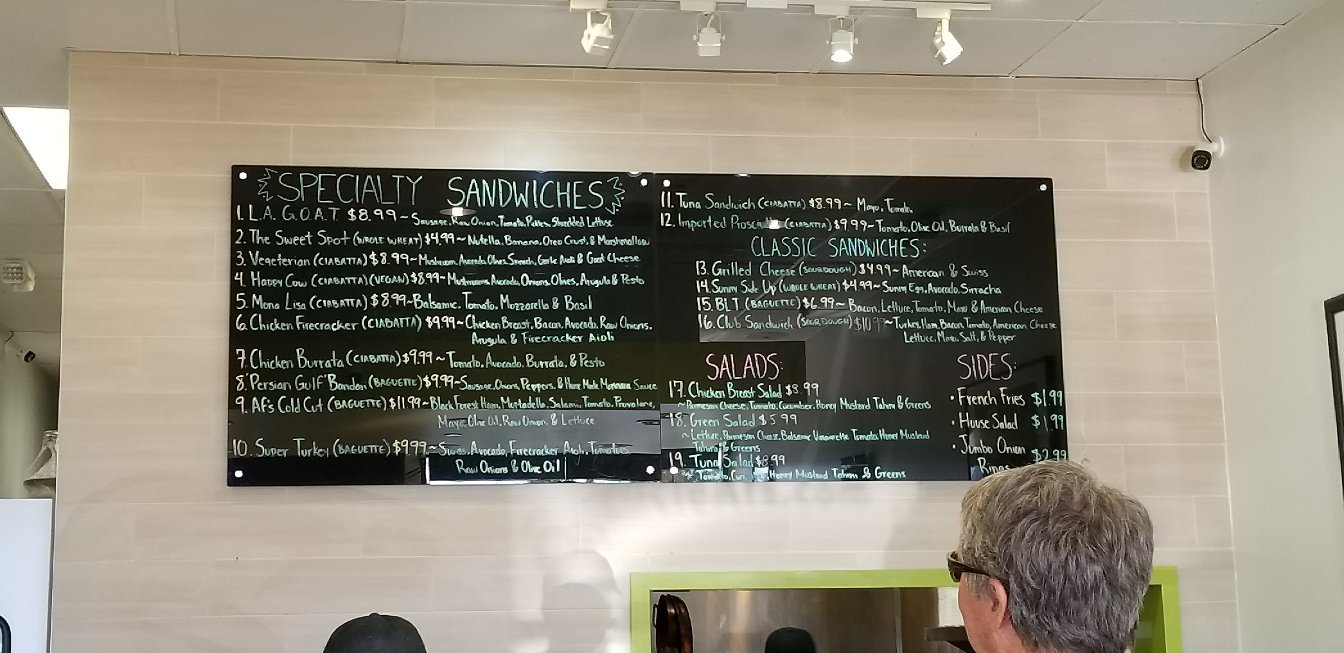 SPECIALTY SANDWICHES
1. L.A. G.O.A.T $8.99~Sausage, Raw Onion, Tomato, Pickles, Shredded Lettuce
2. The Sweet Spot (WHOLE WHEAT) $4.99~Nutella, Banana, Oreo Crust, & Marshmallow
3. Vegeterian (CIABATTA) $8.99~Mushroom, Avocado, Olives, Spinach, Garlic Aioli & Goat Cheese
4. Happy Cow (CIABATTA)(VEGAN) $8.99~Mushrooms, Avocado, Onions, Olives, Arugula & Pesto
5. Mona Lisa (CIABATTA) $8.99-Balsamic, Tomato, Mozzarella & Basil
6. Chicken Firecracker (CIABATTA) $9.99~Chicken Breast, Bacon, Avocado, Raw Onions,
Arugula & Firecracker Aioli
7. Chicken Burrata (CIABATTA) $9.99~Tomato, Avocado, Burrata, & Pesto
8. "Persian Gulf" Bandari (BAGUETTE) $9.99~Sausage, Onions, Peppers, & Home Made Marinara Sauce
9. Af's Cold Cut (BAGUETTE) $11.99~Black Forest Ham, Mortadella, Salami, Tomato, Provolone,
Mayo, Olive Oil, Raw Onion, & Lettuce
10. Super Turkey (BAGUETTE) $9.99~Swiss, Avocado, Firecracker Aioli, Tomatoes,
Raw Onions & Olive Oil
11. Tuna Sandwich (CIABATTA) $8.99~ Mayo, Tomato,
12. Imported Prosciutto (CIABATTA) $9.99~Tomato, Olive Oil, Burrata & Basil
CLASSIC SANDWICHES:
13. Grilled Cheese (SOURDOUGH) $4.99~American & Swiss
14. Sunny Side Up (WHOLE WHEAT) $4.99~Sunny Egg, Avocado, Sirracha
15. BLT (BAGUETTE) $6.99~Bacon, Lettuce, Tomato, Mayo & American Cheese
16. Club Sandwich (SOURDOUGH) $10.99~Turkey, Ham, Bacon, Tomato, American Cheese
Lettuce, Mayo, Salt, & Pepper
SALADS:
17. Chicken Breast Salad $8.99
~Parmesan Cheese, Tomato, Cucumber, Honey Mustard Tahini & Greens
18. Green Salad $5.99
~Lettuce, Parmesan Cheese, Balsamic Vinaigrette, Tomato, Honey Mustard
Tahini & Greens
19. Tuna Salad $8.99
Tomato, Honey Mustard Tahini & Greens
SIDES:
• French Fries $1.99
• House Salad $1.99
• Jumbo Onion $2.99
Rings